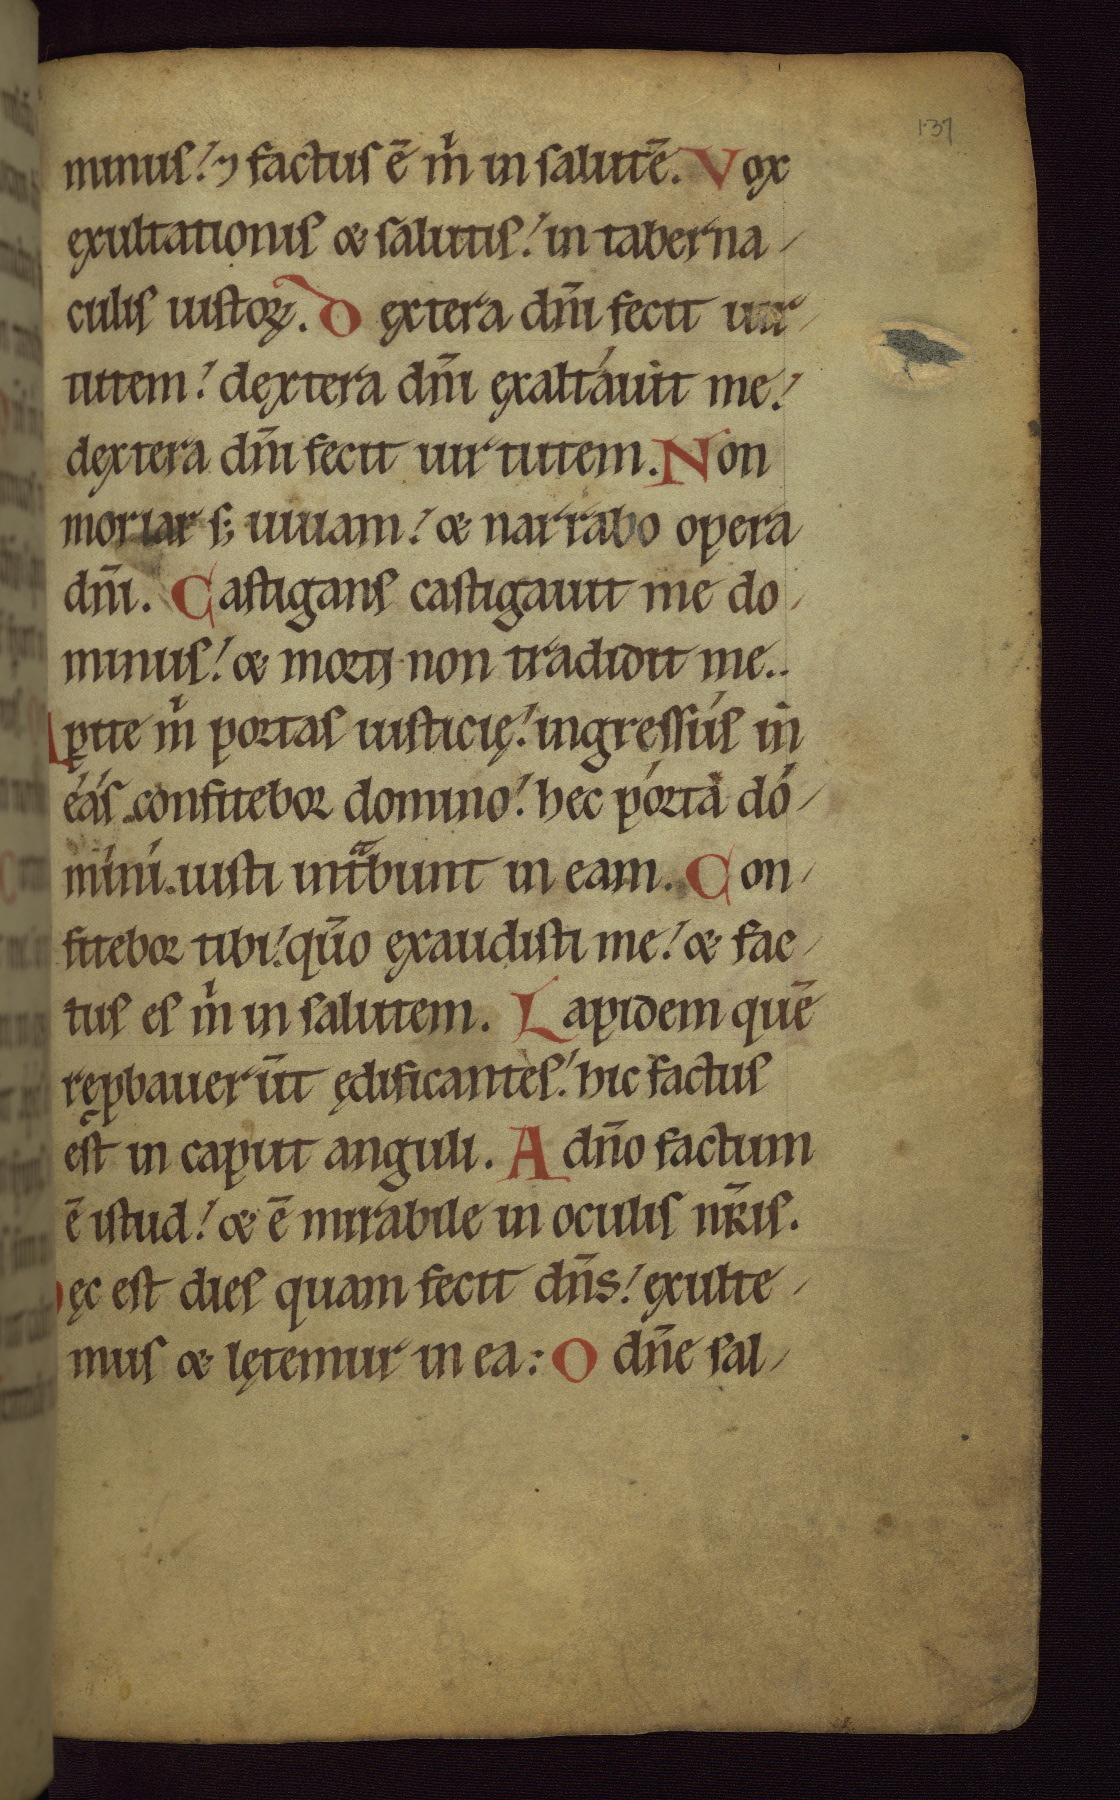 137
minus! ⁊ factus ē m̄ in salutē. Vox
exultationis & salutis! in taberna-
culis iustoꝝ. Dextera dn̄i fecit uir-
tutem! dextera dn̄i exaltáuit me!
dextera dn̄i fecit uirtutem. Non
moriar s; uiuam! & narrabo opera
dn̄i. Castigans castigauit me do-
minus! & morti non tradidit me.
Aꝑite m̄ portas iusticię! ingressús in
éás confitebor domino! hec pórta dó-
míní iusti int̄bunt in eam. Con-
fitebor tibi! qūo exaudisti me! & fac-
tus es m̄ in salutem. Lapidem quē
reꝓbauerūt ędificantes! hic factus
est in caput anguli. A dn̄o factum
ē istud! & ē mirabile in oculis nr̄is.
Hęc est dies quam fecit dn̄s! exulte-
mus & lętemur in ea: O dn̄e sal-